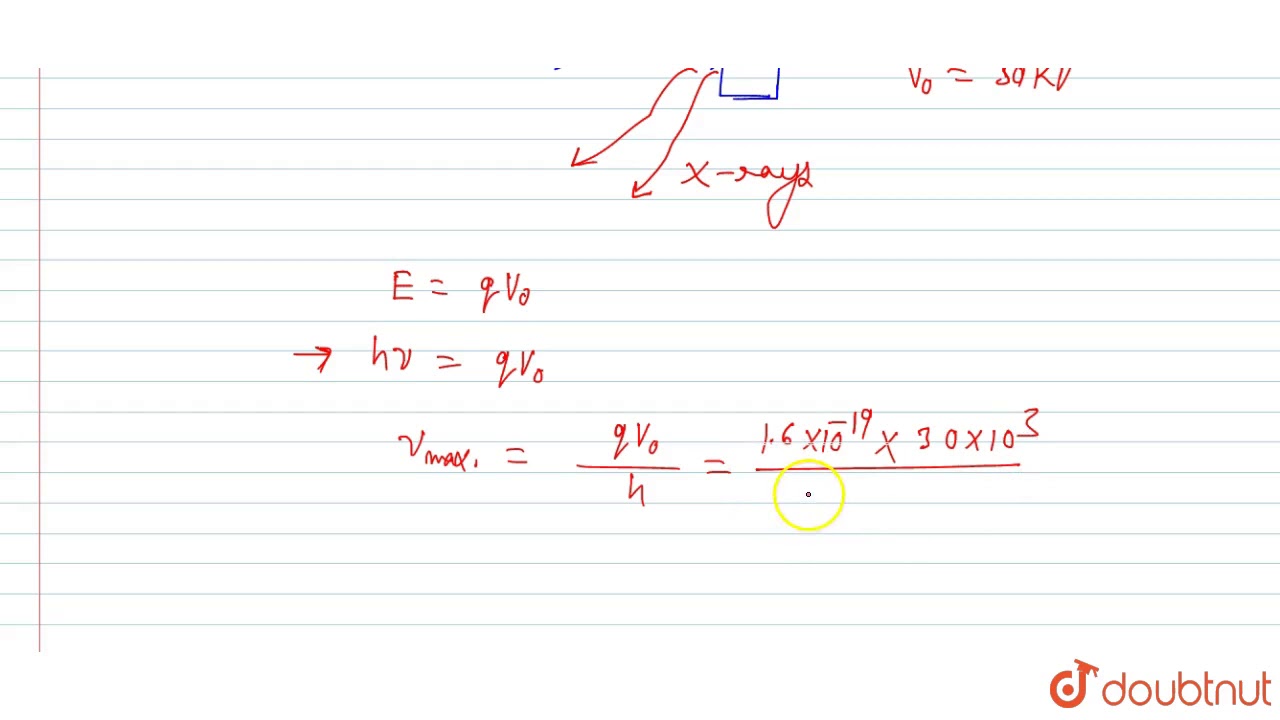 V₀ = 30 KV
X-rays
E = qV₀
→ hν = qV₀
ν max. = qV₀ / h = 1.6 × 10⁻¹⁹ × 30 × 10³
doubtnut